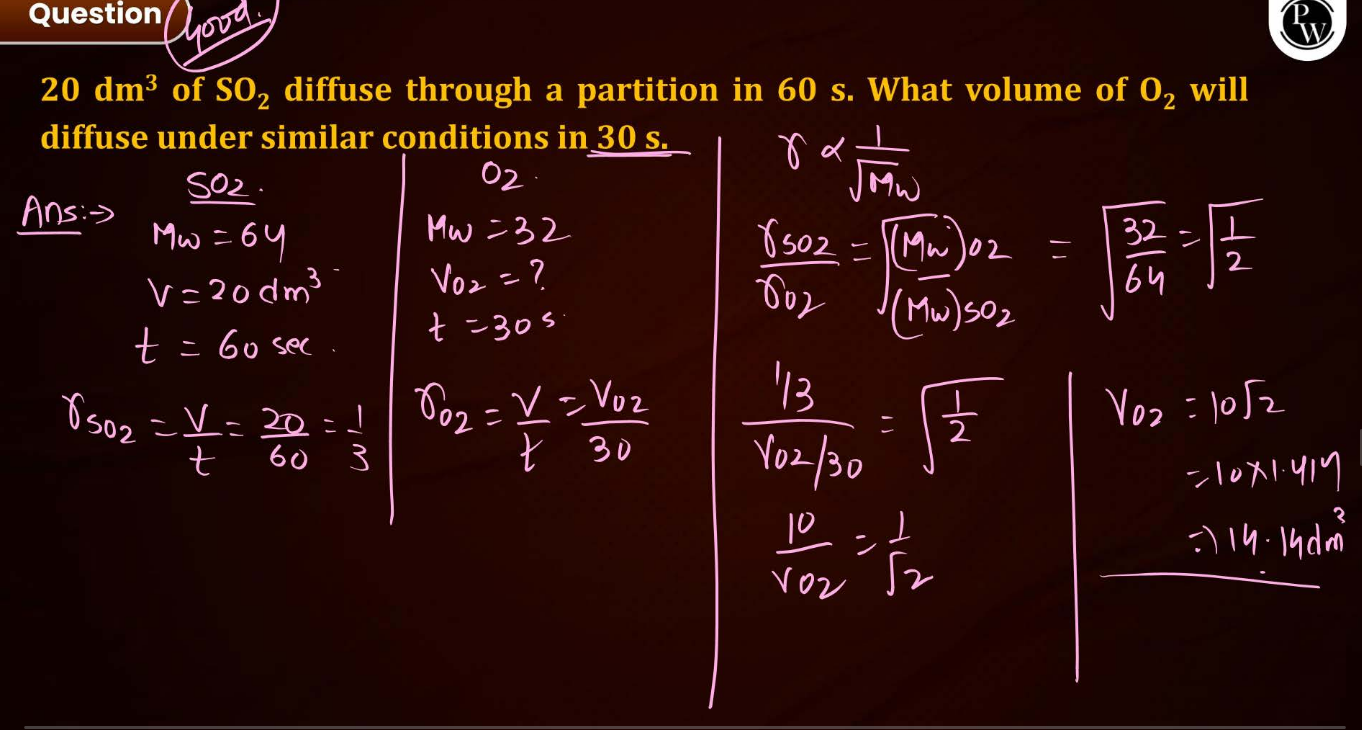 Question
Good.
PW
20 dm³ of SO₂ diffuse through a partition in 60 s. What volume of O₂ will
diffuse under similar conditions in 30 s.
Ans:->
SO2.
Mw = 64
V = 20 dm³
t = 60 sec.
rSO2 = V/t = 20/60 = 1/3
O2.
Mw = 32
VO2 = ?
t = 30 s.
rO2 = V/t = VO2/30
r ∝ 1/√Mw
rSO2/rO2 = √(Mw)O2/(Mw)SO2 = √32/64 = √1/2
1/3/VO2/30 = √1/2
10/VO2 = 1/√2
VO2 = 10√2
= 10×1.414
=) 14.14 dm³